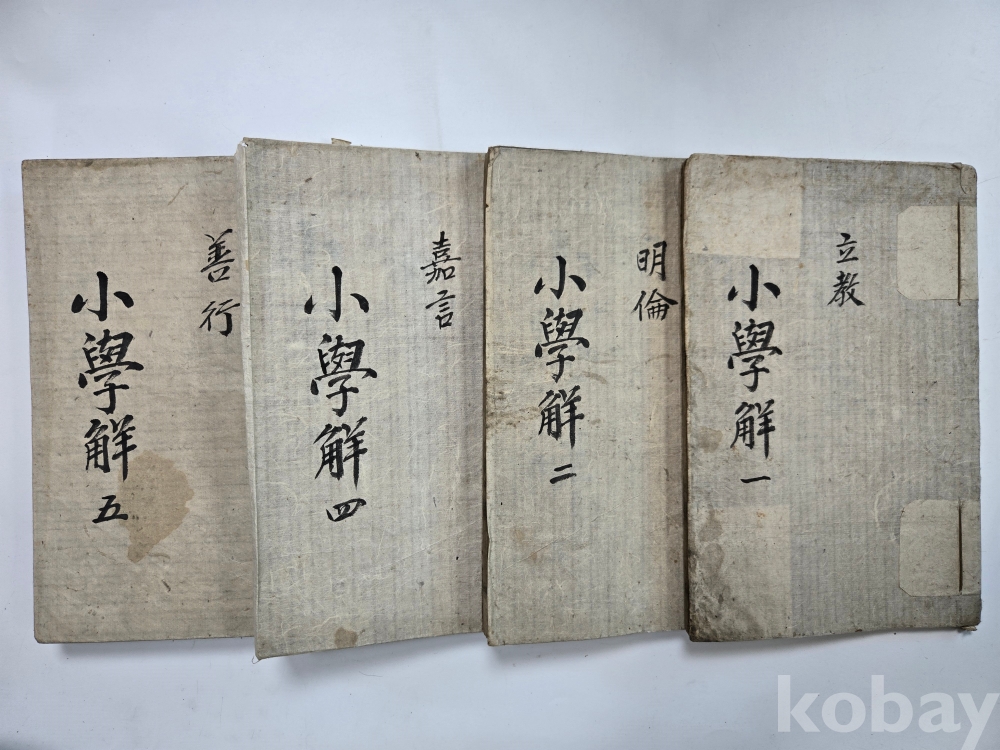 立教
小學解 一
明倫
小學解 二
嘉言
小學解 四
善行
小學解 五
kobay